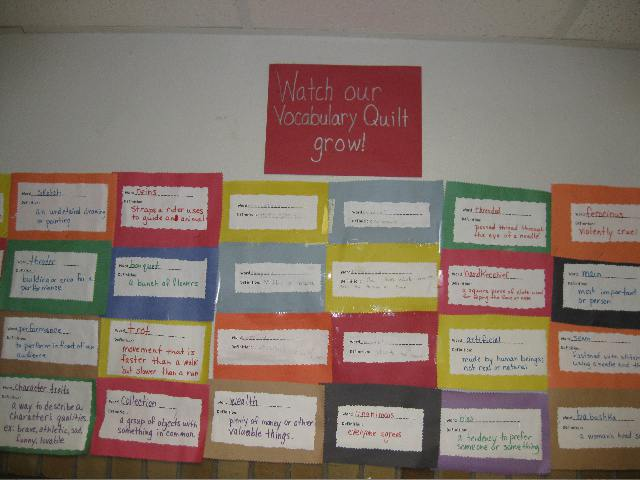 Watch our
Vocabulary Quilt
grow!
Word sketch
Definition:
an undetailed drawing
or painting
Word reins
Definition:
Straps a rider uses
to guide and animal
Word
Definition:
Word
Definition:
Word threaded
Definition:
passed thread through
the eye of a needle
Word ferocious
Definition:
violently cruel
Word theater
Definition:
building or area for a
performance
Word bouquet
Definition:
a bunch of flowers
Word
Definition:
Word
Definition:
Word handkerchief
Definition:
a square piece of cloth used
for wiping the face or nose
Word main
Definition:
most important
or person
Word performance
Definition:
to perform in front of an
audience
Word trot
Definition:
movement that is
faster than a walk
but slower than a run
Word
Definition:
Word
Definition:
Word artificial
Definition:
made by human beings;
not real or natural
Word sewn
Definition:
fastened with stitches
using needle and
Word character traits
Definition:
a way to describe a
character's qualities.
ex: brave, athletic, sad,
funny, lovable
Word Collection
Definition:
a group of objects with
something in common.
Word wealth
Definition:
plenty of money or other
valuable things.
Word unanimous
Definition:
everyone agrees
Word bias
Definition:
a tendency to prefer
someone or something
Word babushka
Definition:
a woman's head